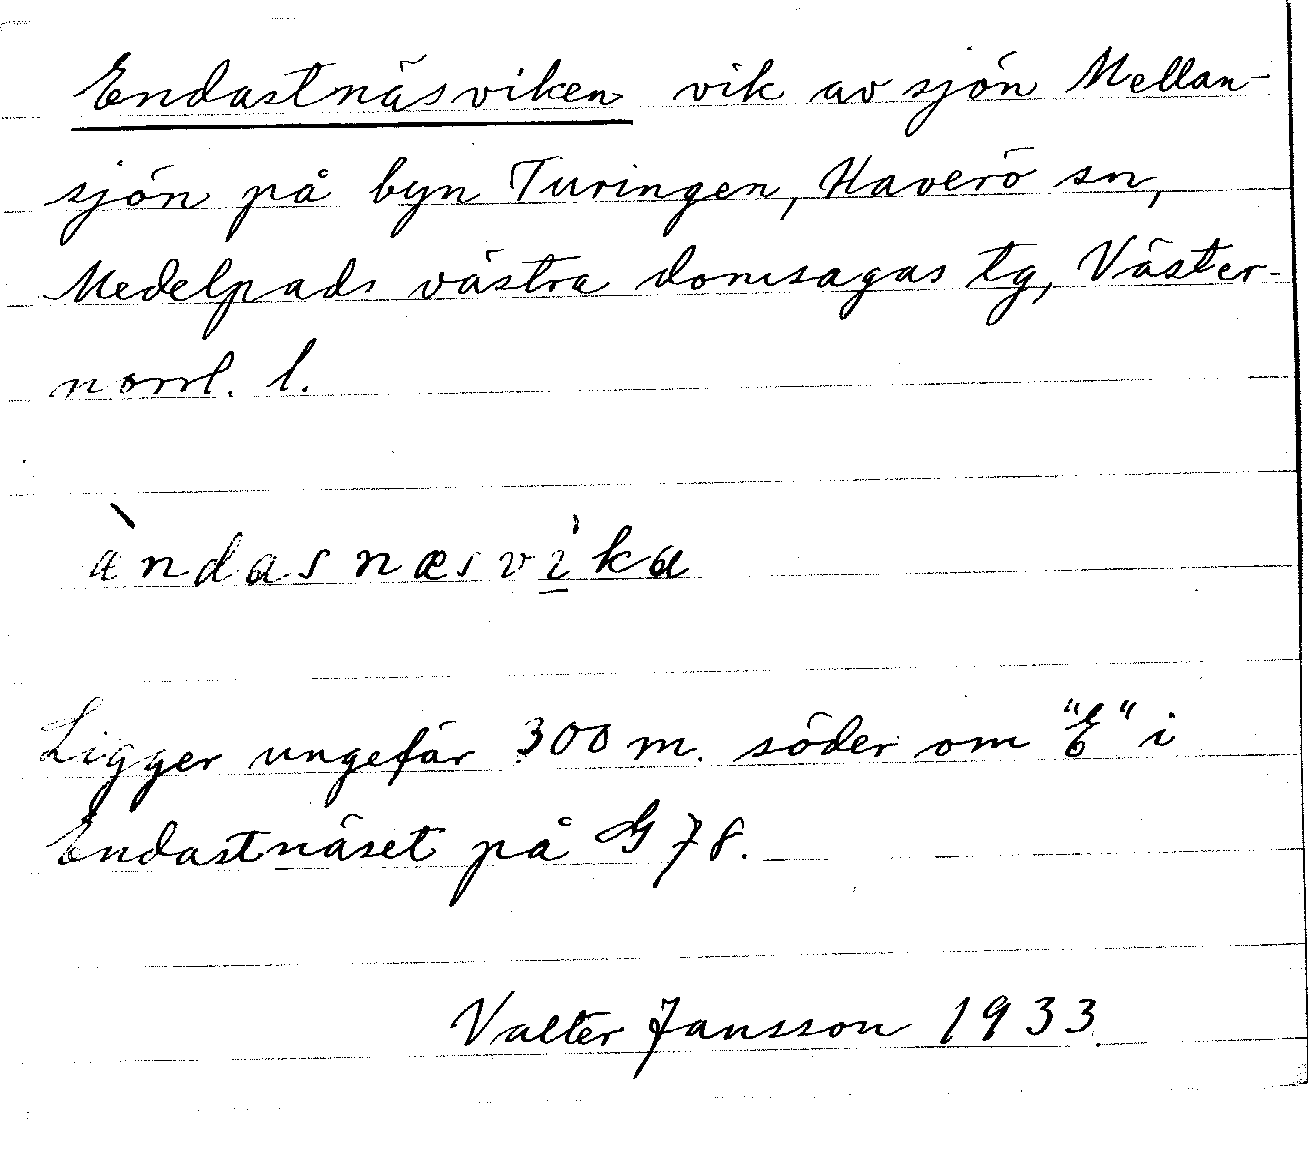 Endastnäsviken vik av sjön Mellan-
sjön på byn Turingen, Haverö sn,
Medelpads västra domsagas tg, Väster-
norrl. l.
àndasnæsvìka
Ligger ungefär 300 m. söder om "E" i
Endastnäset på G 78.
Valter Jansson 1933.